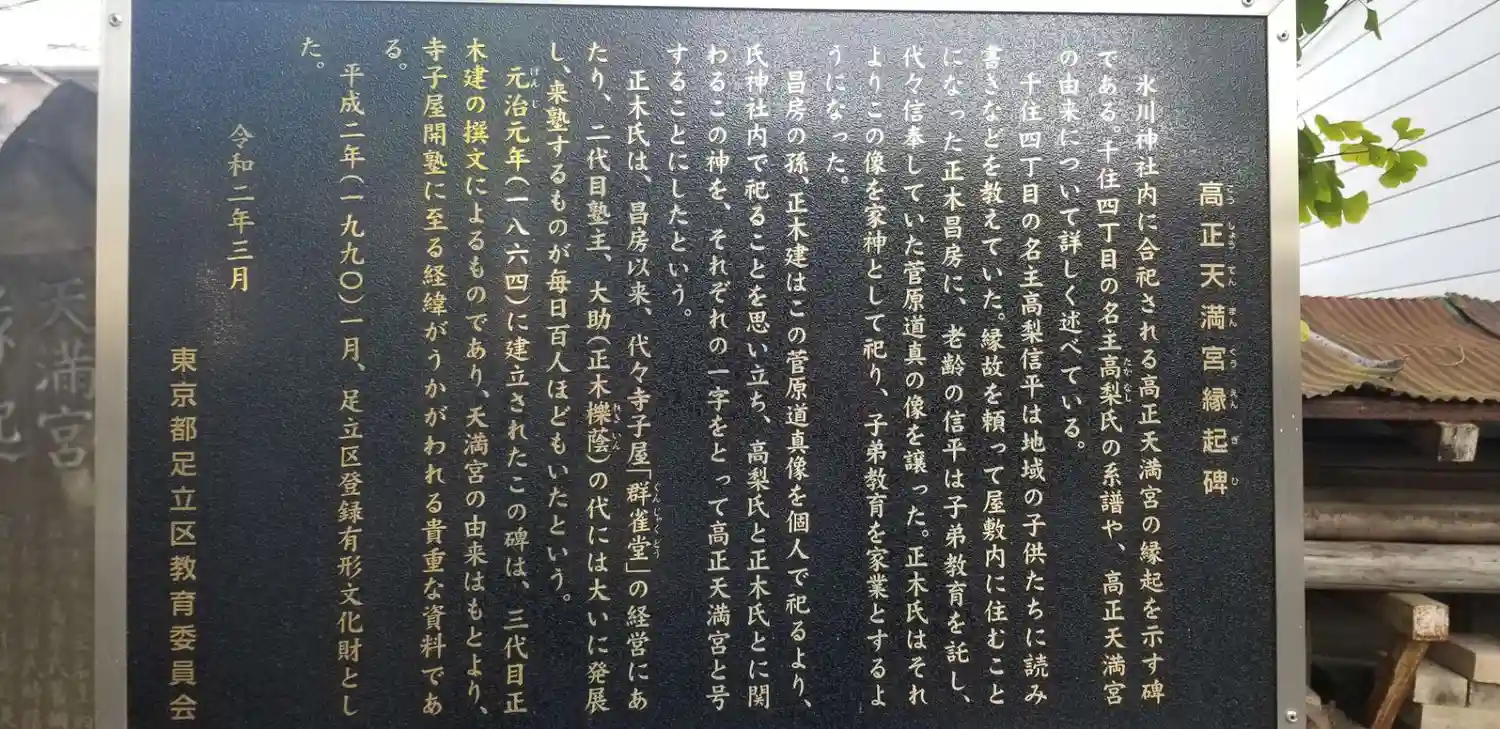 高正天満宮縁起碑
こうしょうてんまんぐうえんぎひ
氷川神社内に合祀される高正天満宮の縁起を示す碑
である。千住四丁目の名主高梨氏の系譜や、高正天満宮
たかなし
の由来について詳しく述べている。
千住四丁目の名主高梨信平は地域の子供たちに読み
書きなどを教えていた。縁故を頼って屋敷内に住むこと
になった正木昌房に、老齢の信平は子弟教育を託し、
代々信奉していた菅原道真の像を譲った。正木氏はそれ
よりこの像を家神として祀り、子弟教育を家業とするよ
うになった。
昌房の孫、正木建はこの菅原道真像を個人で祀るより、
氏神社内で祀ることを思い立ち、高梨氏と正木氏とに関
わるこの神を、それぞれの一字をとって高正天満宮と号
することにしたという。
正木氏は、昌房以来、代々寺子屋「群雀堂」の経営にあ
ぐんじゃくどう
たり、二代目塾主、大助(正木櫟蔭)の代には大いに発展
れきいん
し、来塾するものが毎日百人ほどもいたという。
元治元年(一八六四)に建立されたこの碑は、三代目正
げんじ
木建の撰文によるものであり、天満宮の由来はもとより、
寺子屋開塾に至る経緯がうかがわれる貴重な資料であ
る。
平成二年(一九九〇)一月、足立区登録有形文化財とし
た。
令和二年三月
東京都足立区教育委員会
天満宮